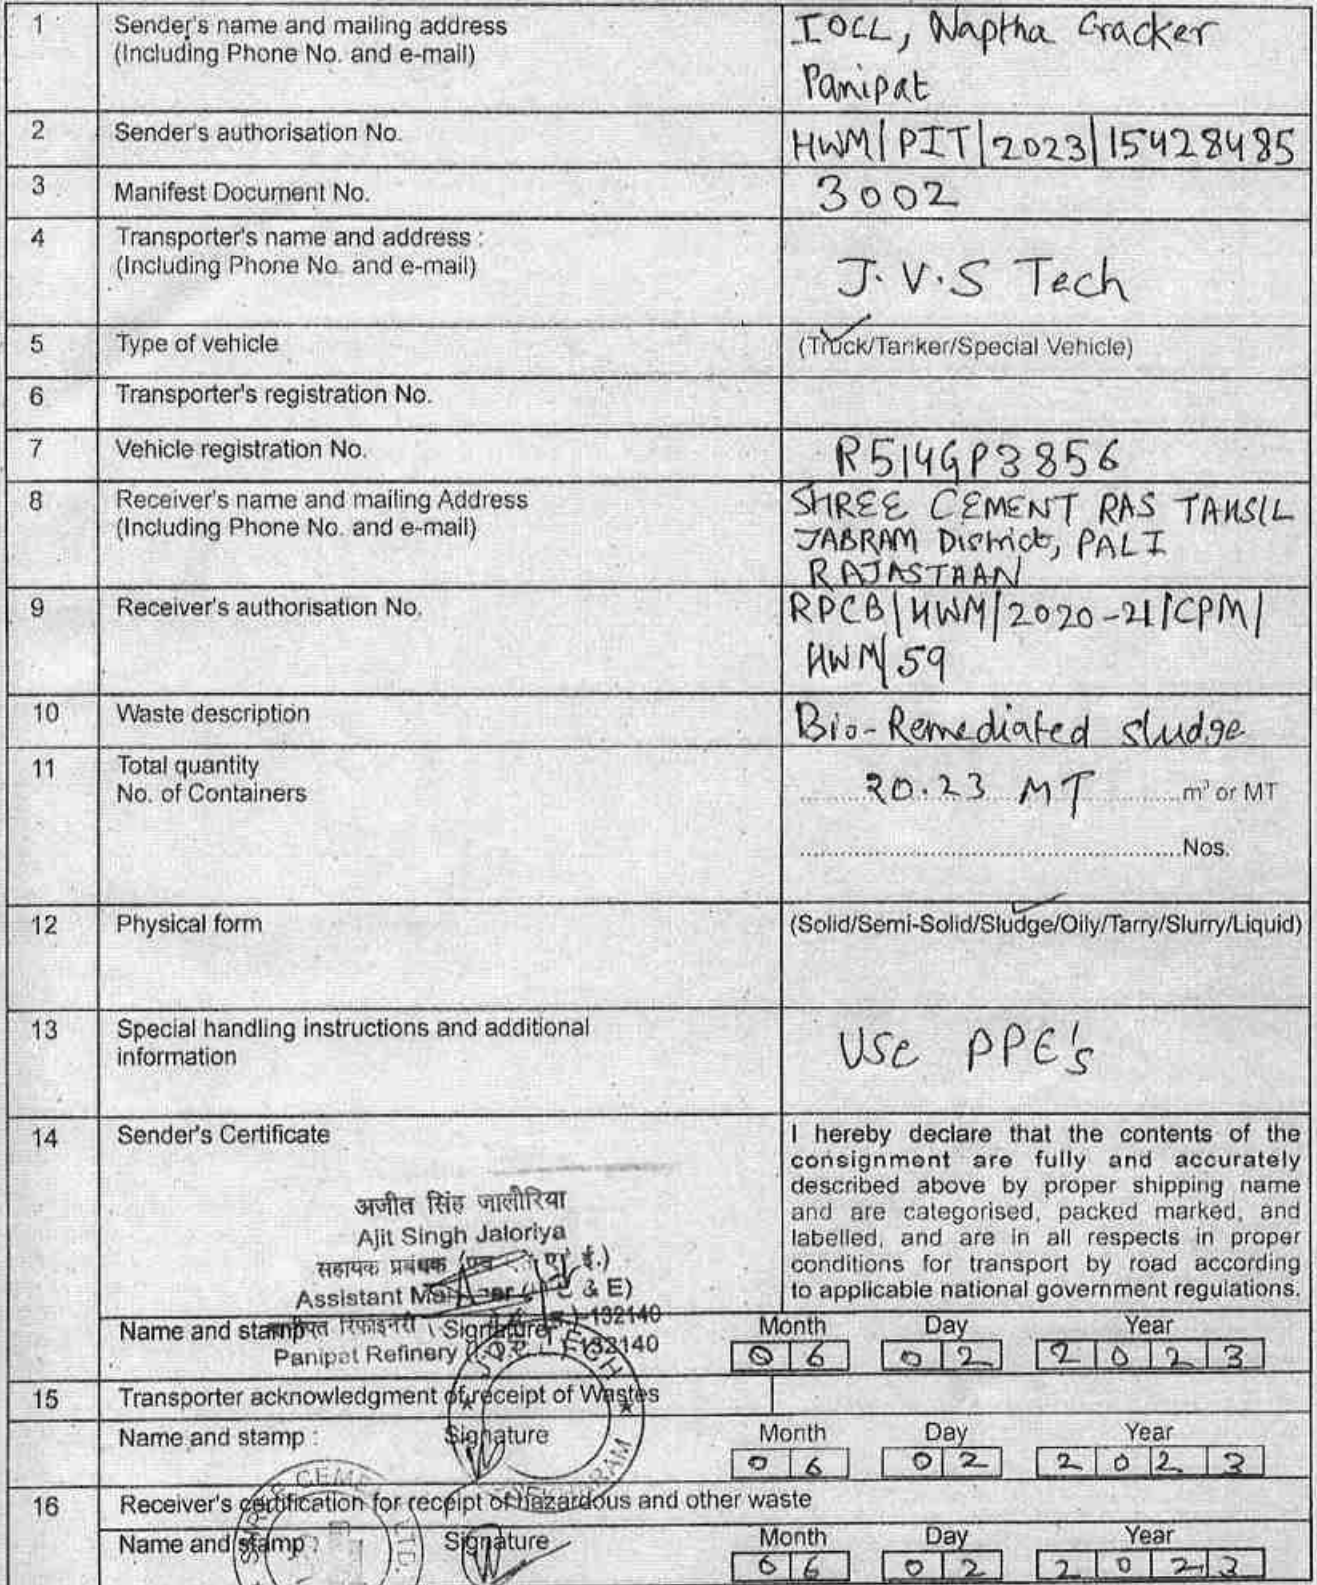 1 Sender's name and mailing address IOCL, Naptha Cracker
(Including Phone No. and e-mail) Panipat
2 Sender's authorisation No. HWM/PIT/2023/15428485
3 Manifest Document No. 3002
4 Transporter's name and address :
(Including Phone No. and e-mail) J.V.S Tech
5 Type of vehicle (Truck/Tanker/Special Vehicle)
6 Transporter's registration No.
7 Vehicle registration No. R514GP3856
8 Receiver's name and mailing Address SHREE CEMENT RAS TAHSIL
(Including Phone No. and e-mail) JABRAM District, PALI
RAJASTHAN
9 Receiver's authorisation No. RPCB/HWM/2020-21/CPM/
HWM/59
10 Waste description Bio-Remediated sludge
11 Total quantity 20.23 MT m³ or MT
No. of Containers
Nos.
12 Physical form (Solid/Semi-Solid/Sludge/Oily/Tarry/Slurry/Liquid)
13 Special handling instructions and additional USe PPE's
information
14 Sender's Certificate I hereby declare that the contents of the
consignment are fully and accurately
described above by proper shipping name
and are categorised, packed marked, and
labelled, and are in all respects in proper
conditions for transport by road according
to applicable national government regulations.
अजीत सिंह जालोरिया
Ajit Singh Jaloriya
सहायक प्रबंधक
Assistant Manager & E)
रिफाइनरी 132140
Name and stamp Signature Month Day Year
Panipat Refinery 132140 06 02 2023
15 Transporter acknowledgment of receipt of Wastes
Name and stamp : Signature Month Day Year
06 02 2023
16 Receiver's certification for receipt of hazardous and other waste
Name and stamp : Signature Month Day Year
06 02 2023